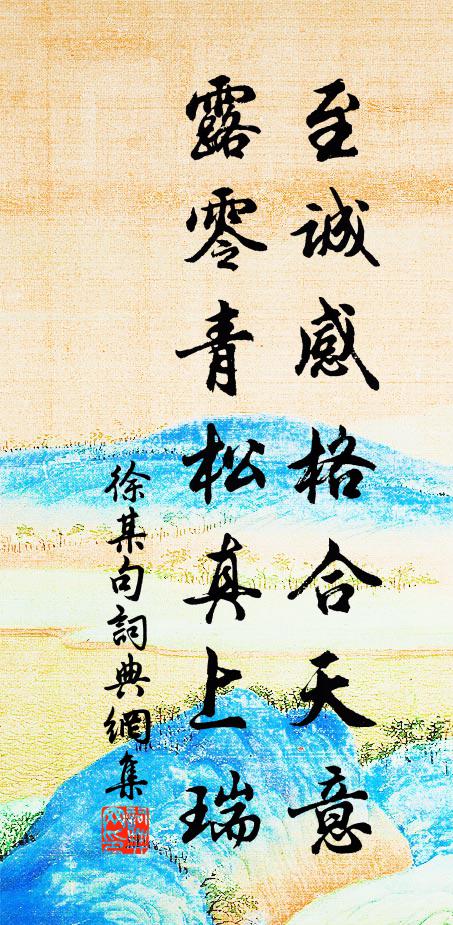 至誠感格合天意
露零青松真上瑞
徐某句詞典網集